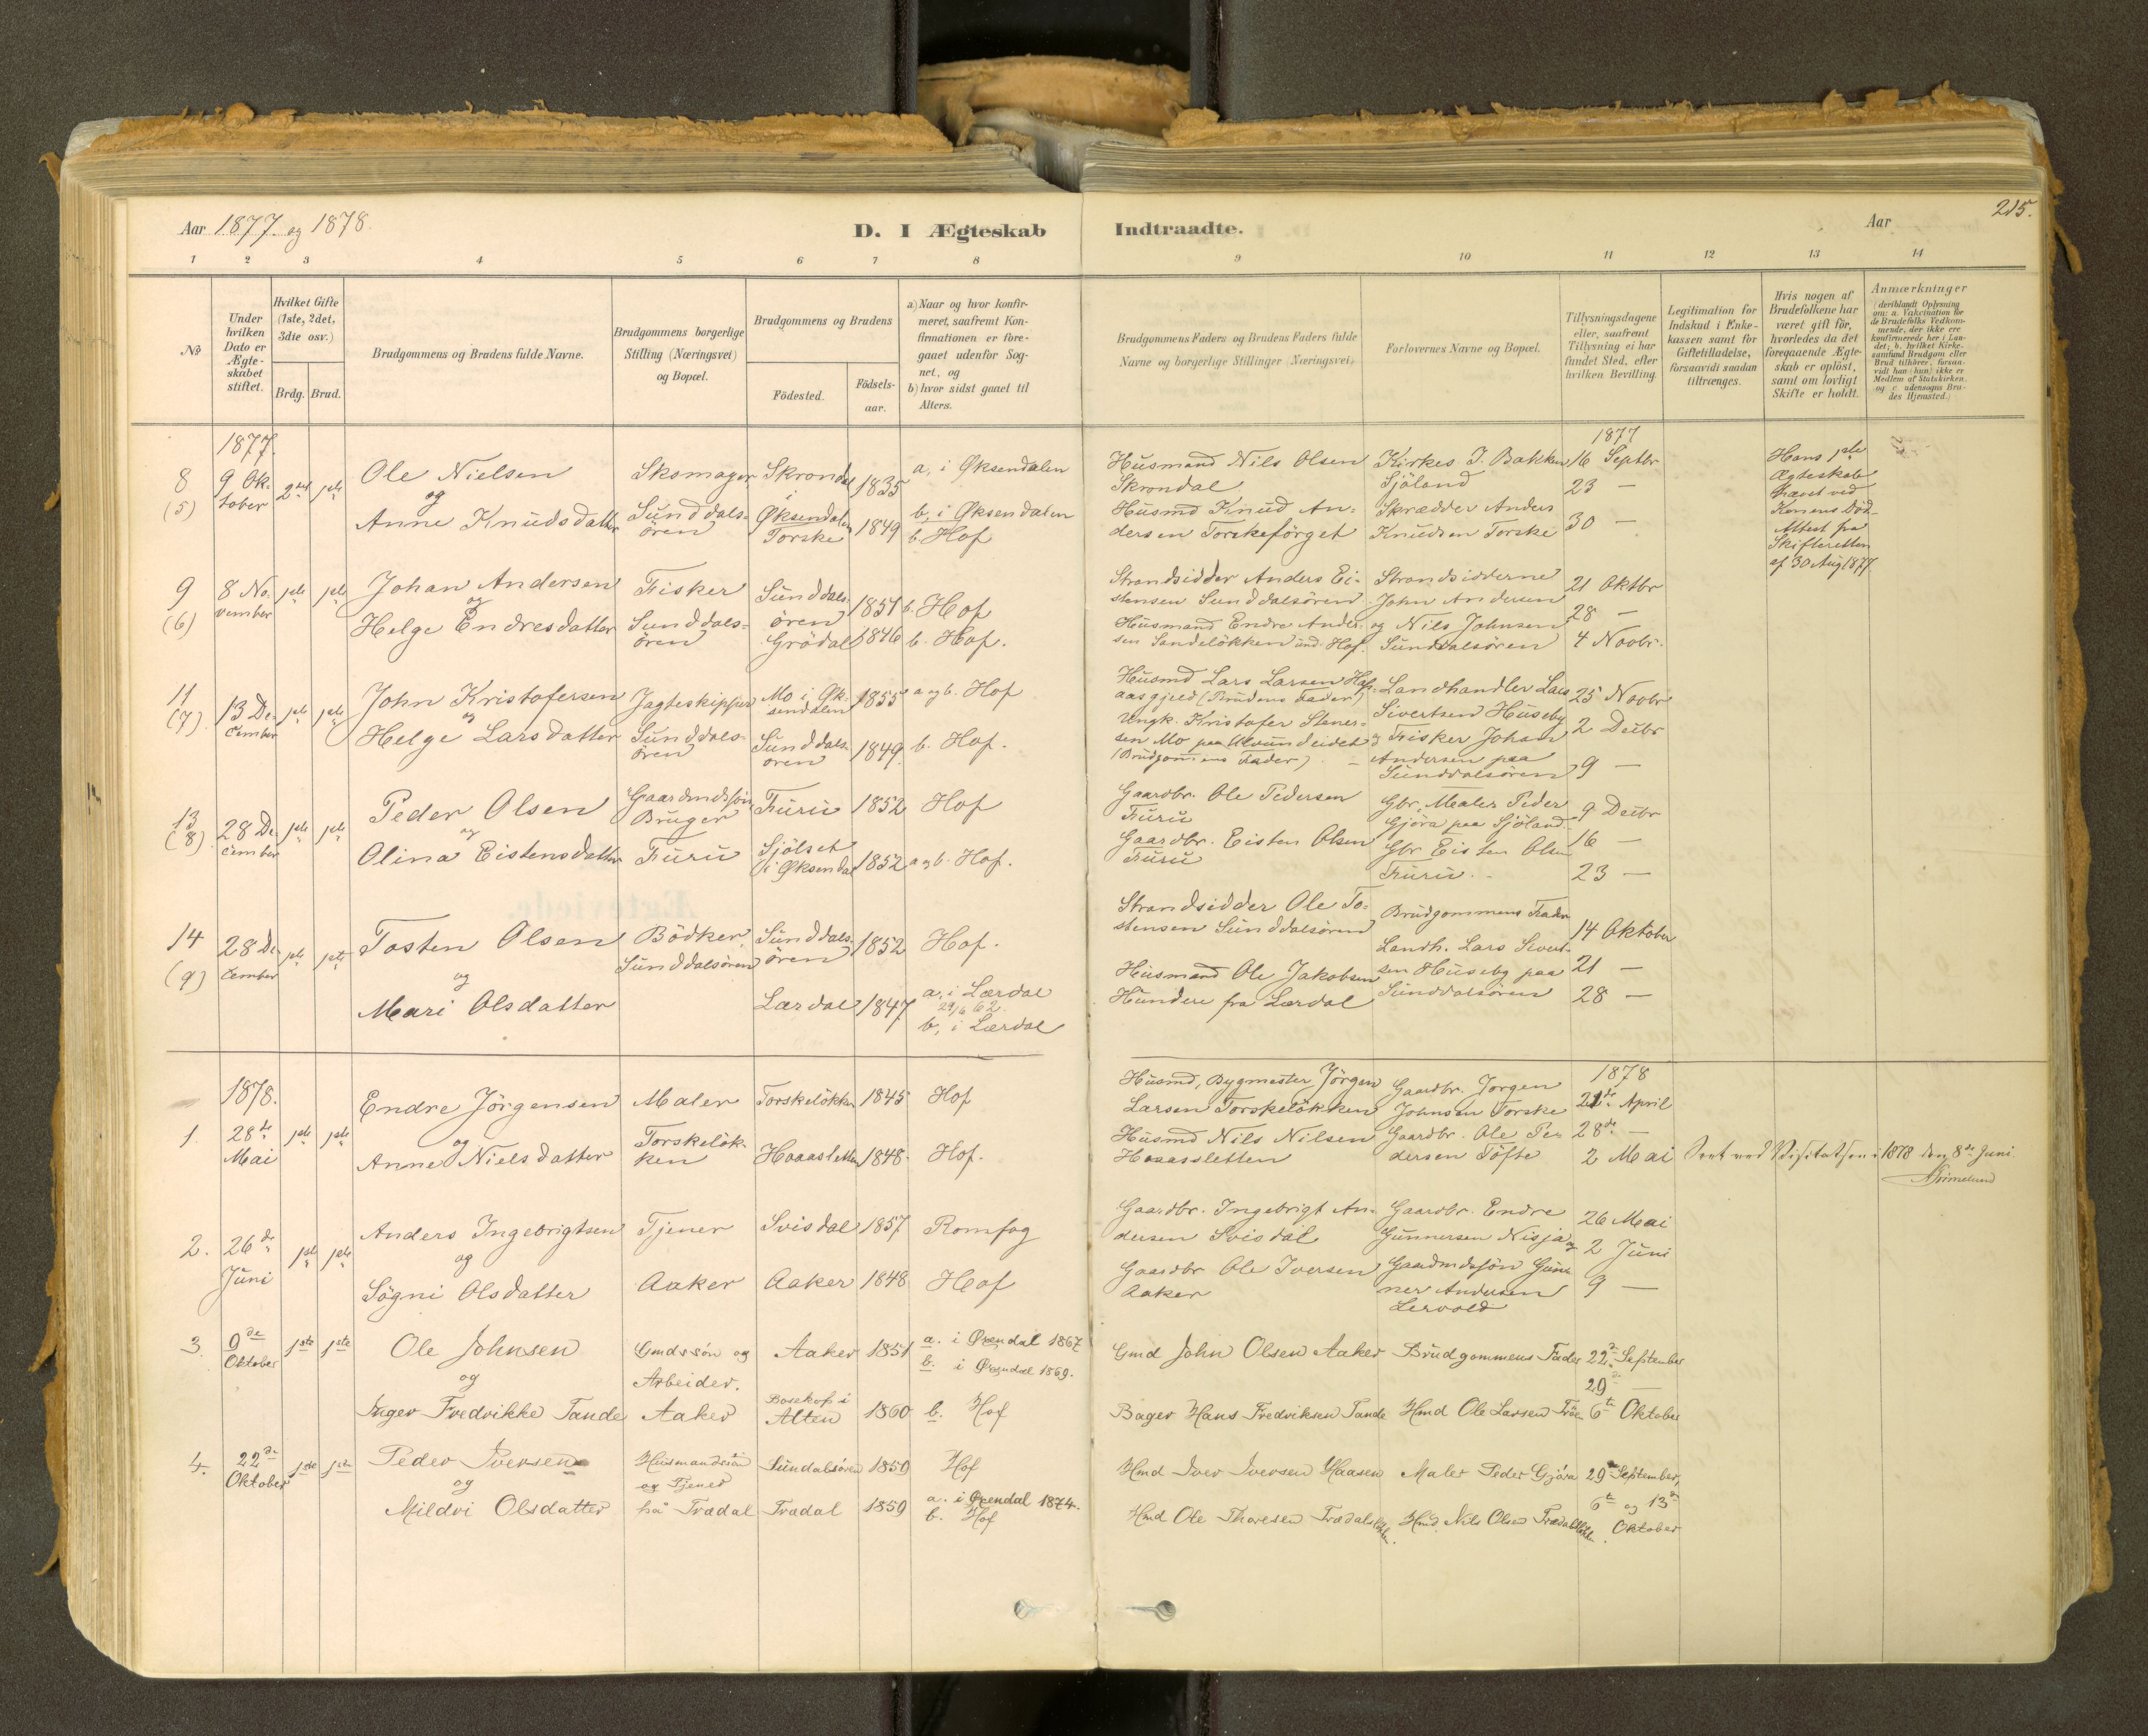 Aar 1877. og 1878.
D. I Ægteskab
Indtraadte.
Aar
215.
1 2 3 4 5 6 7 8 9 10 11 12 13 14
No
Under hvilken Dato er Ægteskabet stiftet.
Hvilket Gifte (1ste, 2det, 3die osv.)
Brdg. Brud.
Brudgommens og Brudens fulde Navne.
Brudgommens borgerlige Stilling (Næringsvei) og Bopæl.
Brudgommens og Brudens
Födested.
Födsels-aar.
a) Naar og hvor konfir-
meret, saafremt Kon-
firmationen er fore-
gaaet udenfor Sog-
net, og
b) hvor sidst gaaet til
Alters.
Brudgommens Faders og Brudens Faders fulde
Navne og borgerlige Stillinger (Næringsvei).
Forlovernes Navne og Bopæl.
Tillysningsdagene
eller, saafremt
Tillysning ei har
fundet Sted, efter
hvilken Bevilling.
Legitimation for
Indskud i Enke-
kassen samt for
Giftetilladelse,
forsaavidt saadan
tiltrænges.
Hvis nogen af
Brudefolkene har
været gift för,
hvorledes da det
foregaaende Ægte-
skab er oplöst,
samt om lovligt
Skifte er holdt.
Anmærkninger
(deriblandt Oplysning
om: a. Vakcination for
de Brudefolks Vedkom-
mende, der ikke ere
konfirmerede her i Lan-
det; b. hvilket Kirke-
samfund Brudgom eller
Brud tilhörer, forsaa-
vidt han (hun) ikke er
Medlem af Statskirken,
og c. udensogns Bru-
des Hjemsted.)
1877.
8
(5)
9 Ok-
tober
2det 1ste
Ole Nielsen
og
Anne Knudsdatter
Skomager
Sunddals-
ören
Skrondal
i
Öksendalen
Torske
1835
1849
a, i Öksendalen
b, i Öksendalen
b. Hof
Husmand Nils Olsen
Skrondal
Husmd Knud An-
dersen Torskeförget
Kirkes J. Bakken
Sjöland
Skrædder Anders
Knudsen Torske
1877
16 Septbr
23 —
30 —
Hans 1ste
Ægteskab
hævet ved
Konens Död-
Attest fra
Skifteretten
af 30 Aug 1877
9
(6)
8 No-
vember
1ste 1ste
Johan Andersen
og
Helge Endresdatter
Fisker
Sunddals-
ören
Sunddals-
ören
Grödal
1851
1846
b. Hof
b. Hof.
Strandsidder Anders Ei-
stensen Sunddalsören
Husmand Endre Ander-
sen Sandelökken und. Hof.
Strandsidderne
John Andersen
og Nils Johnsen
Sunddalsören
21 Oktbr
28 —
4 Novbr.
11
(7).
13 De-
cember
1ste 1ste
John Kristofersen
og
Helge Larsdatter
Jagteskipper
Sunddals-
ören
Mo i Ök-
sendalen
Sunddals-
ören
1855
1849.
a og b. Hof
b. Hof.
Husmd Lars Larsen Hofs-
aasgjeld (Brudens Fader)
Ungk. Kristofer Stener-
sen Mo paa Alvundeidet
(Brudgommens Fader) —
Landhandler Lars
Sivertsen Huseby
og Fisker Johan
Andersen paa
Sunddalsören
25 Novbr
2 Decbr
9 —
13
(8)
28 De-
cember
1ste 1ste
Peder Olsen
og
Olina Eistensdatter
Gaardmdssön
Bruger
Furu
Furu
Sjölset
i Öksendal
1852
1852
Hof
a og b. Hof.
Gaardbr. Ole Pedersen
Furu
Gaardbr. Eisten Olsen
Furu
Gbr. Maler Peder
Gjöra paa Sjöland
Gbr Eisten Olsen
Furu.
9 Decbr
16 —
23 —
14
(9)
28 De-
cember
1ste 1ste
Tosten Olsen
og
Mari Olsdatter
Bödker,
Sunddalsören
Sunddals-
ören
Lærdal
1852
1847
Hof.
a, i Lærdal
29/6 62.
b, i Lærdal
Strandsidder Ole To-
stensen Sunddalsören
Husmand Ole Jakobsen
Hundere fra Lærdal
Brudgommens Fader
Landh. Lars Sivert-
sen Huseby paa
Sunddalsören
14 Oktober
21 —
28 —
1878.
1.
28de
Mai
1ste 1ste
Endre Jörgensen
og
Anne Nielsdatter
Maler
Torskelök-
ken
Torskelökken
Hoaasletten
1845
1848.
Hof
Hof.
Husmd, Bygmester Jörgen
Larsen Torskelökken
Husmd Nils Nilsen
Hoaassletten
Gaardbr. Jörgen
Johnsen Torske
Gaardbr. Ole Pe-
dersen Töfte
1878
21de April
28de —
2 Mai
Seet ved Visitatsen 1878 den 8de Juni
Grimelund
2.
26de
Juni
1ste 1ste
Anders Ingebrigtsen
og
Sögni Olsdatter
Tjener
Aaker
Svisdal
Aaker
1857
1848
Romfog
Hof
Gaardbr. Ingebrigt An-
dersen Svisdal
Gaardbr Ole Iversen
Aaker
Gaardbr. Endre
Gunnersen Nisja og
Gaardmdssön Gun-
ner Andersen
Lervold
26 Mai
2 Juni
9 —
3.
9de
Oktober
1ste 1ste
Ole Johnsen
og
Inger Fredrikke Tande
Gmdssön og
Arbeider.
Aaker
Aaker
Bosekop i
Alten
1851
1860
a. i Öxendal 1867
b. i Öxendal 1869.
b. Hof
Gmd John Olsen Aaker
Bager Hans Fredriksen Tande
Brudgommens Fader
Hmd Ole Larsen
22de September
29de —
6te Oktober
4.
22de
Oktober
1ste 1ste
Peder Iversen
og
Mildri Olsdatter
Husmandssön
og Tjener
på Trædal
Sundalsören
Trædal
1859
1859
Hof
a. i Öxendal 1874.
b. Hof
Hmd Iver Iversen Haasen
Hmd Ole Thoresen
Maler Peder Gjöra
Hmd. Nils Olsen
29de September,
6te og 13de
Oktober